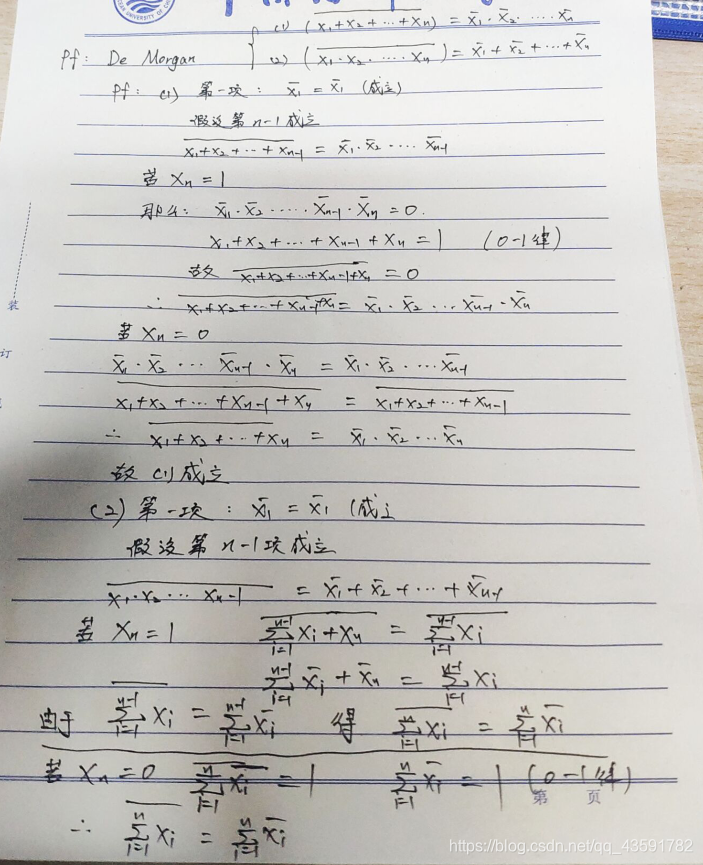 (1) (\overline{x₁+x₂+⋯+xₙ}) = x̄₁·x̄₂·⋯·x̄ₙ
Pf: De Morgan { (2) (\overline{x₁·x₂·⋯·xₙ}) = x̄₁+x̄₂+⋯+x̄ₙ
Pf: (1) 第一项: x̄₁ = x̄₁ (成立)
假设第n-1成立
\overline{x₁+x₂+⋯+xₙ₋₁} = x̄₁·x̄₂⋯x̄ₙ₋₁
若 xₙ=1
那么: x̄₁·x̄₂·⋯·x̄ₙ₋₁·x̄ₙ=0.
x₁+x₂+⋯+xₙ₋₁+xₙ=1 (0-1律)
故 \overline{x₁+x₂+⋯+xₙ₋₁+xₙ} = 0
∴ \overline{x₁+x₂+⋯+xₙ₋₁+xₙ} = x̄₁·x̄₂⋯x̄ₙ₋₁·x̄ₙ
装
若 xₙ=0
订
x̄₁·x̄₂⋯x̄ₙ₋₁·x̄ₙ = x̄₁·x̄₂·⋯x̄ₙ₋₁
\overline{x₁+x₂+⋯+xₙ₋₁+xₙ} = \overline{x₁+x₂+⋯+xₙ₋₁}
∴ \overline{x₁+x₂+⋯+xₙ} = x̄₁·x̄₂⋯x̄ₙ
故(1)成立
(2) 第一项: x̄₁ = x̄₁ (成立
假设第n-1项成立
\overline{x₁·x₂⋯xₙ₋₁} = x̄₁+x̄₂+⋯+x̄ₙ₋₁
若 xₙ=1 \overline{∑_{i=1}^{n-1} xᵢ+xₙ} = \overline{∑_{i=1}^{n-1} xᵢ}
∑_{i=1}^{n-1} x̄ᵢ + x̄ₙ = ∑_{i=1}^{n-1} xᵢ
由于 \overline{∑_{i=1}^{n-1} xᵢ} = ∑_{i=1}^{n-1} x̄ᵢ 得 \overline{∑_{i=1}^{n} xᵢ} = ∑_{i=1}^{n} x̄ᵢ
若 xₙ=0 \overline{∑_{i=1}^{n} x̄ᵢ} = 1 ∑_{i=1}^{n} x̄ᵢ = 1 (0-1律)
第 页
∴ \overline{∑_{i=1}^{n} xᵢ} = ∑_{i=1}^{n} x̄ᵢ
https://blog.csdn.net/qq_43591782